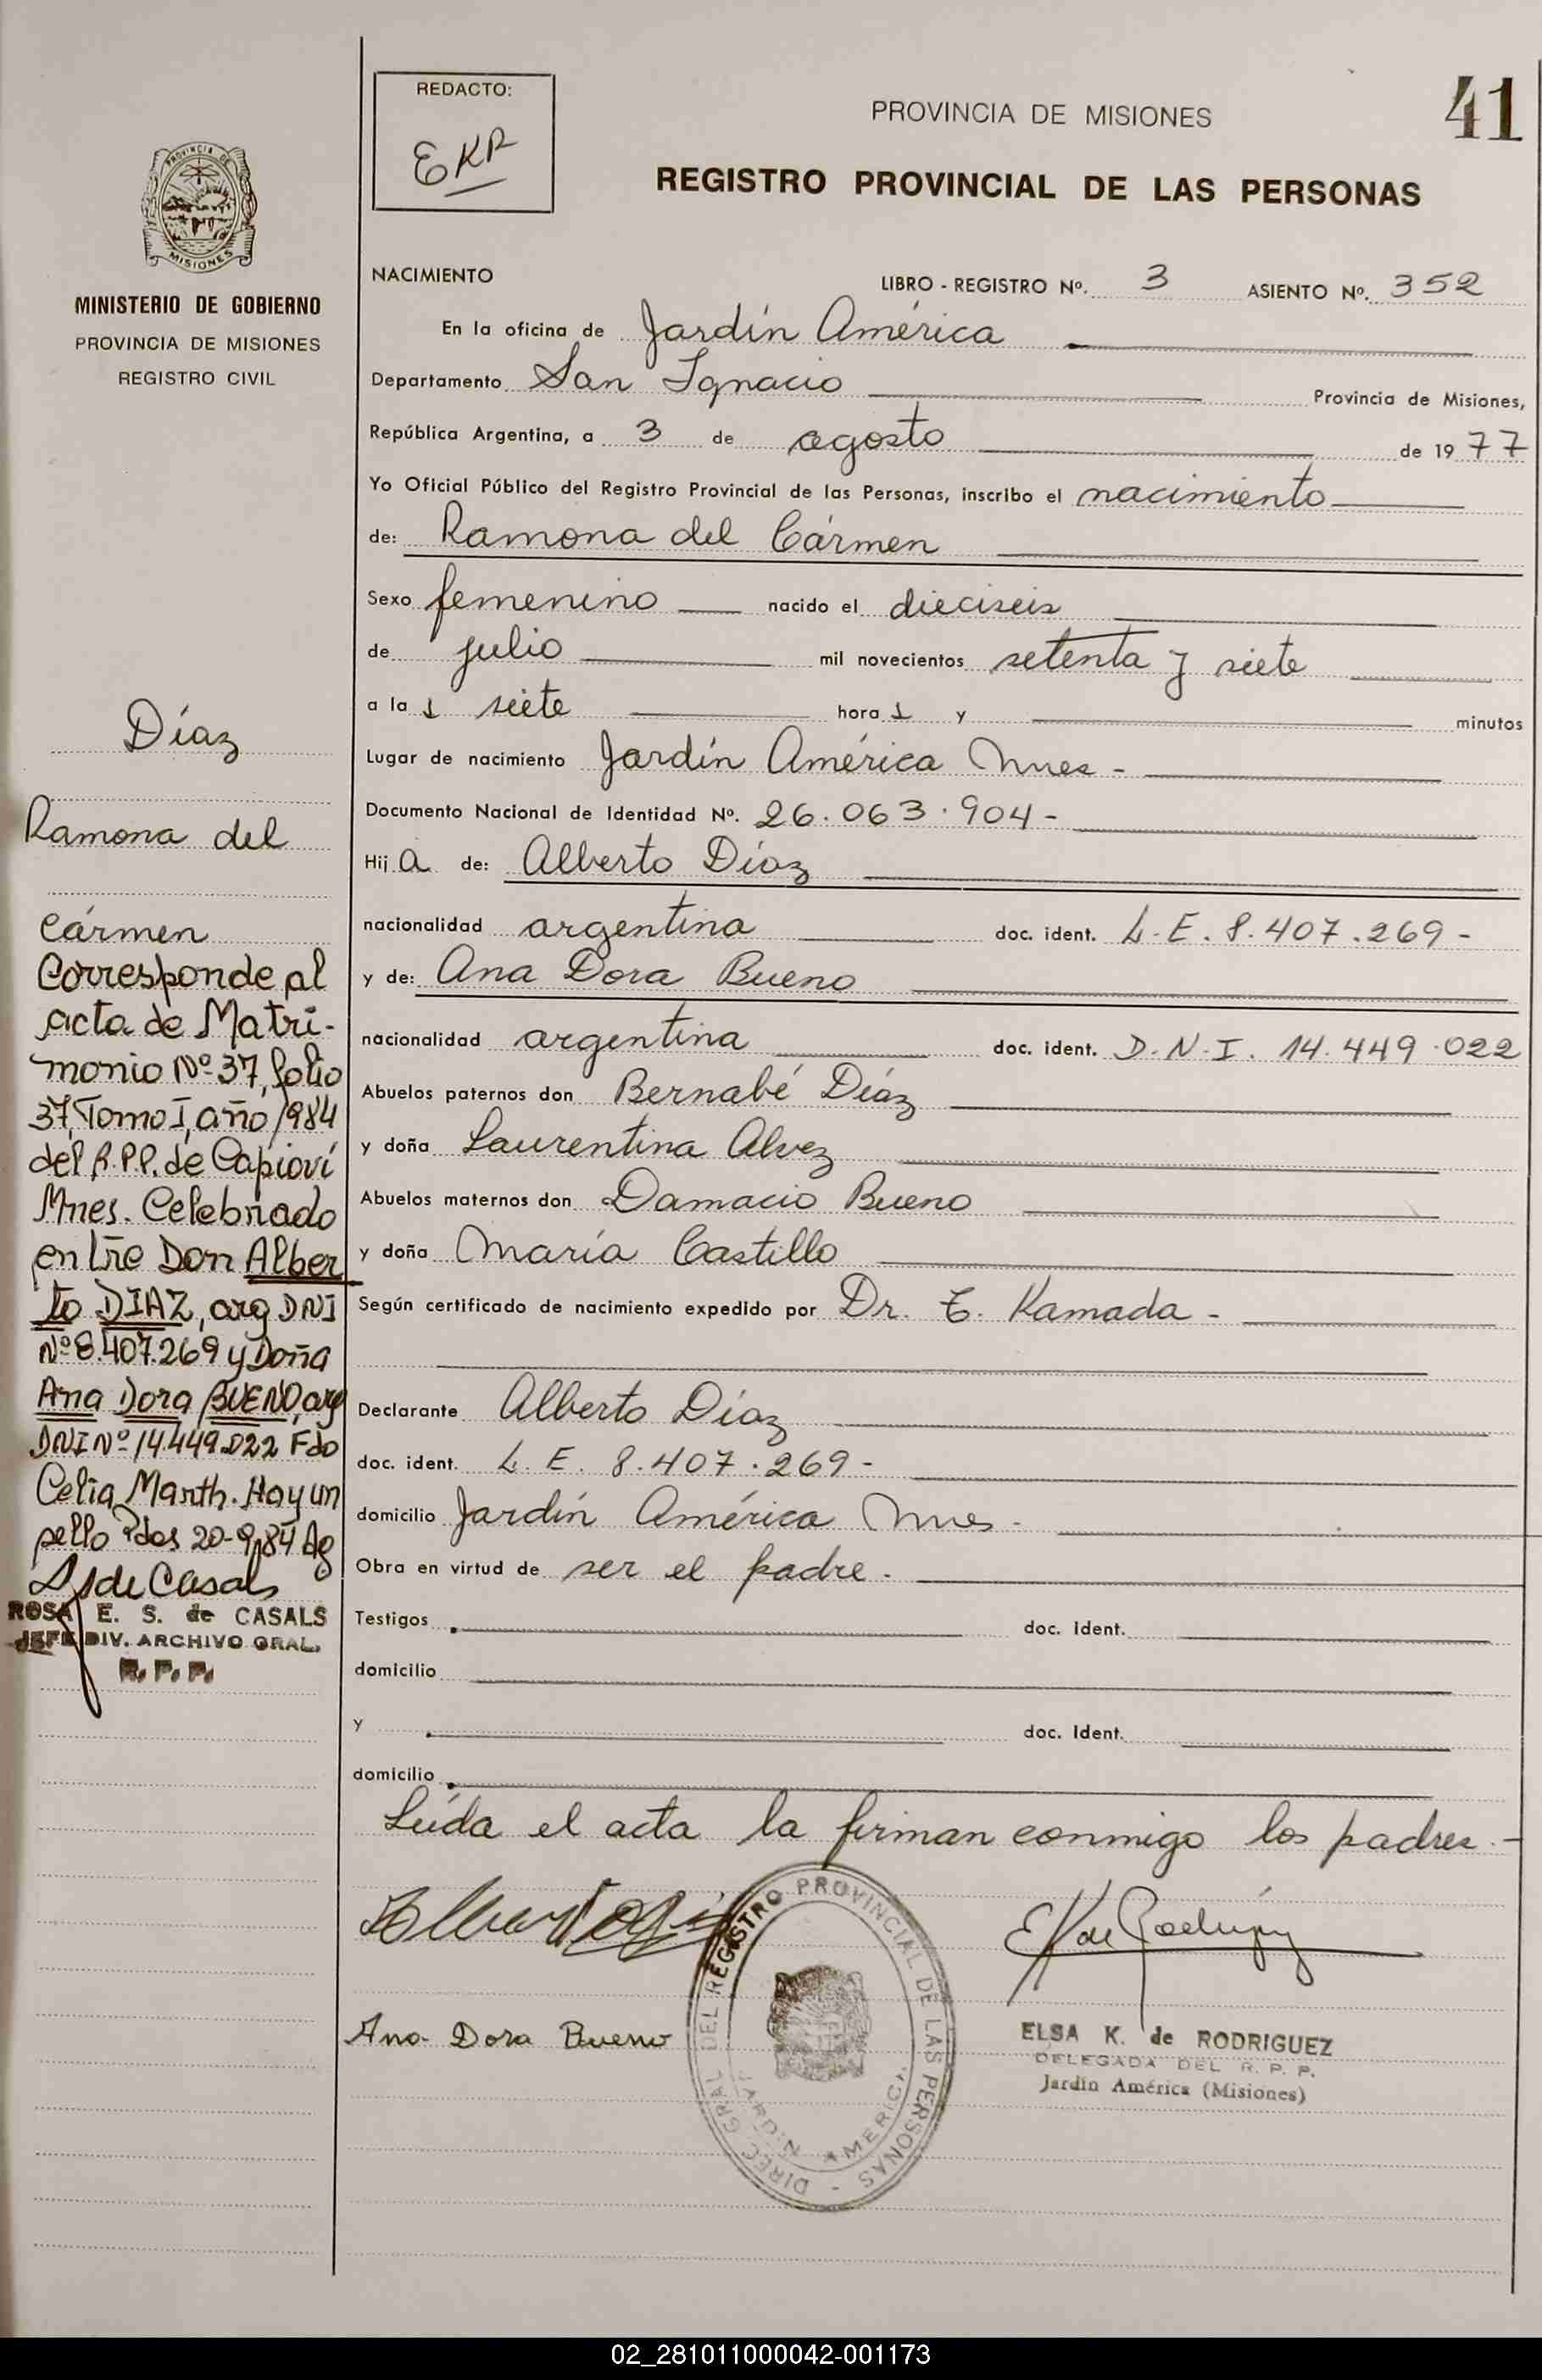 REDACTO:
EKR
PROVINCIA DE MISIONES
41
REGISTRO PROVINCIAL DE LAS PERSONAS
PROVINCIA DE
MISIONES
MINISTERIO DE GOBIERNO
PROVINCIA DE MISIONES
REGISTRO CIVIL
NACIMIENTO
LIBRO - REGISTRO Nº. 3 ASIENTO Nº. 352
En la oficina de Jardín América
Departamento San Ignacio Provincia de Misiones,
República Argentina, a 3 de agosto de 1977
Yo Oficial Público del Registro Provincial de las Personas, inscribo el nacimiento
de: Ramona del Cármen
Sexo femenino nacido el dieciseis
de julio mil novecientos setenta y siete
a la s siete hora s y minutos
Lugar de nacimiento Jardín América Mnes -
Documento Nacional de Identidad Nº. 26.063.904-
Hij a de: Alberto Díaz
nacionalidad argentina doc. ident. L.E. 8.407.269-
y de: Ana Dora Bueno
nacionalidad argentina doc. ident. D.N.I. 14.449.022
Abuelos paternos don Bernabé Díaz
y doña Laurentina Alvez
Abuelos maternos don Damacio Bueno
y doña María Castillo
Según certificado de nacimiento expedido por Dr. T. Kamada -
Declarante Alberto Díaz
doc. ident. L.E. 8.407.269-
domicilio Jardín América Mnes -
Obra en virtud de ser el padre.
Testigos doc. Ident.
domicilio
y doc. Ident.
domicilio
Leída el acta la firman conmigo los padres.-
Díaz
Ramona del
Cármen
Corresponde al
acta de Matri-
monio Nº 37, folio
37, Tomo I, año 1984
del R.P.P. de Capioví
Mnes. Celebrado
entre Don Alber
to DIAZ, arg DNI
Nº 8.407.269 y Doña
Ana Dora BUENO, arg
DNI Nº 14.449.022 Fdo
Celia Marth. Hay un
sello Pdas 20-9-84
S de Casals
ROSA E. S. de CASALS
JEFE DIV. ARCHIVO GRAL.
R. P. P.
Ana Dora Bueno
DIREC. GRAL. DEL REGISTRO PROVINCIAL DE LAS PERSONAS -
JARDIN AMERICA
E K de Rodriguez
ELSA K. de RODRIGUEZ
DELEGADA DEL R. P. P.
Jardín América (Misiones)
02_281011000042-001173